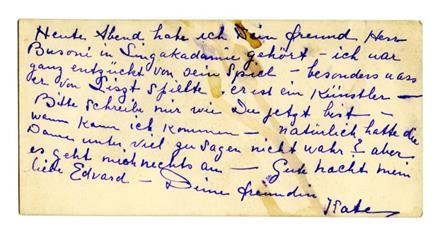 Heute Abend habe ich Dein freund Herr
Busoni in Singakadamie gehört - ich war
ganz entzückt von sein Spiel - besonders was
er von Liszt spielte - er ist ein Künstler -
Bitte schreibe mir wie Du jetzt bist -
wann kann ich kommen - natürlich hatte die
Damen unter viel zu sagen nicht wahr? aber
es geht mich nechts an - Gute nacht mein
liebe Edvard - Deine freundin
Kate